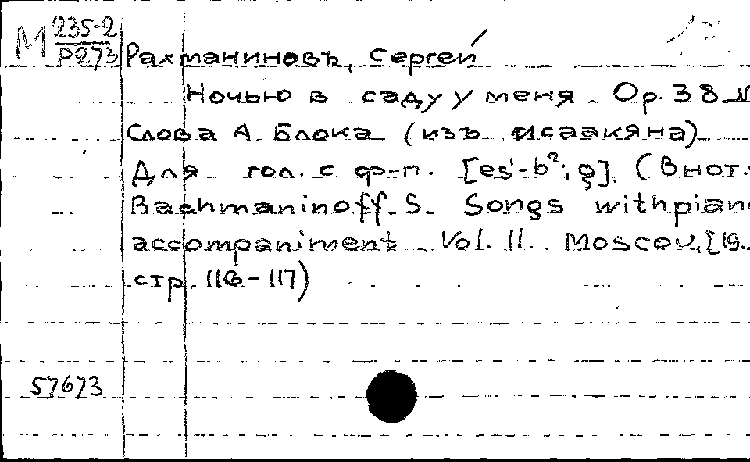 М 235-2
Р273
Рахманиновъ, Сергей
Ночью в саду у меня. Op. 38 №
Слова А. Блока (изъ Исаакяна)
Для гол. с ф-п. [es¹-b²; g]. (В нот.
Rachmaninoff S. Songs with pian
accompaniment. Vol. II. Moscow, [19
стр. 116-117)
57673